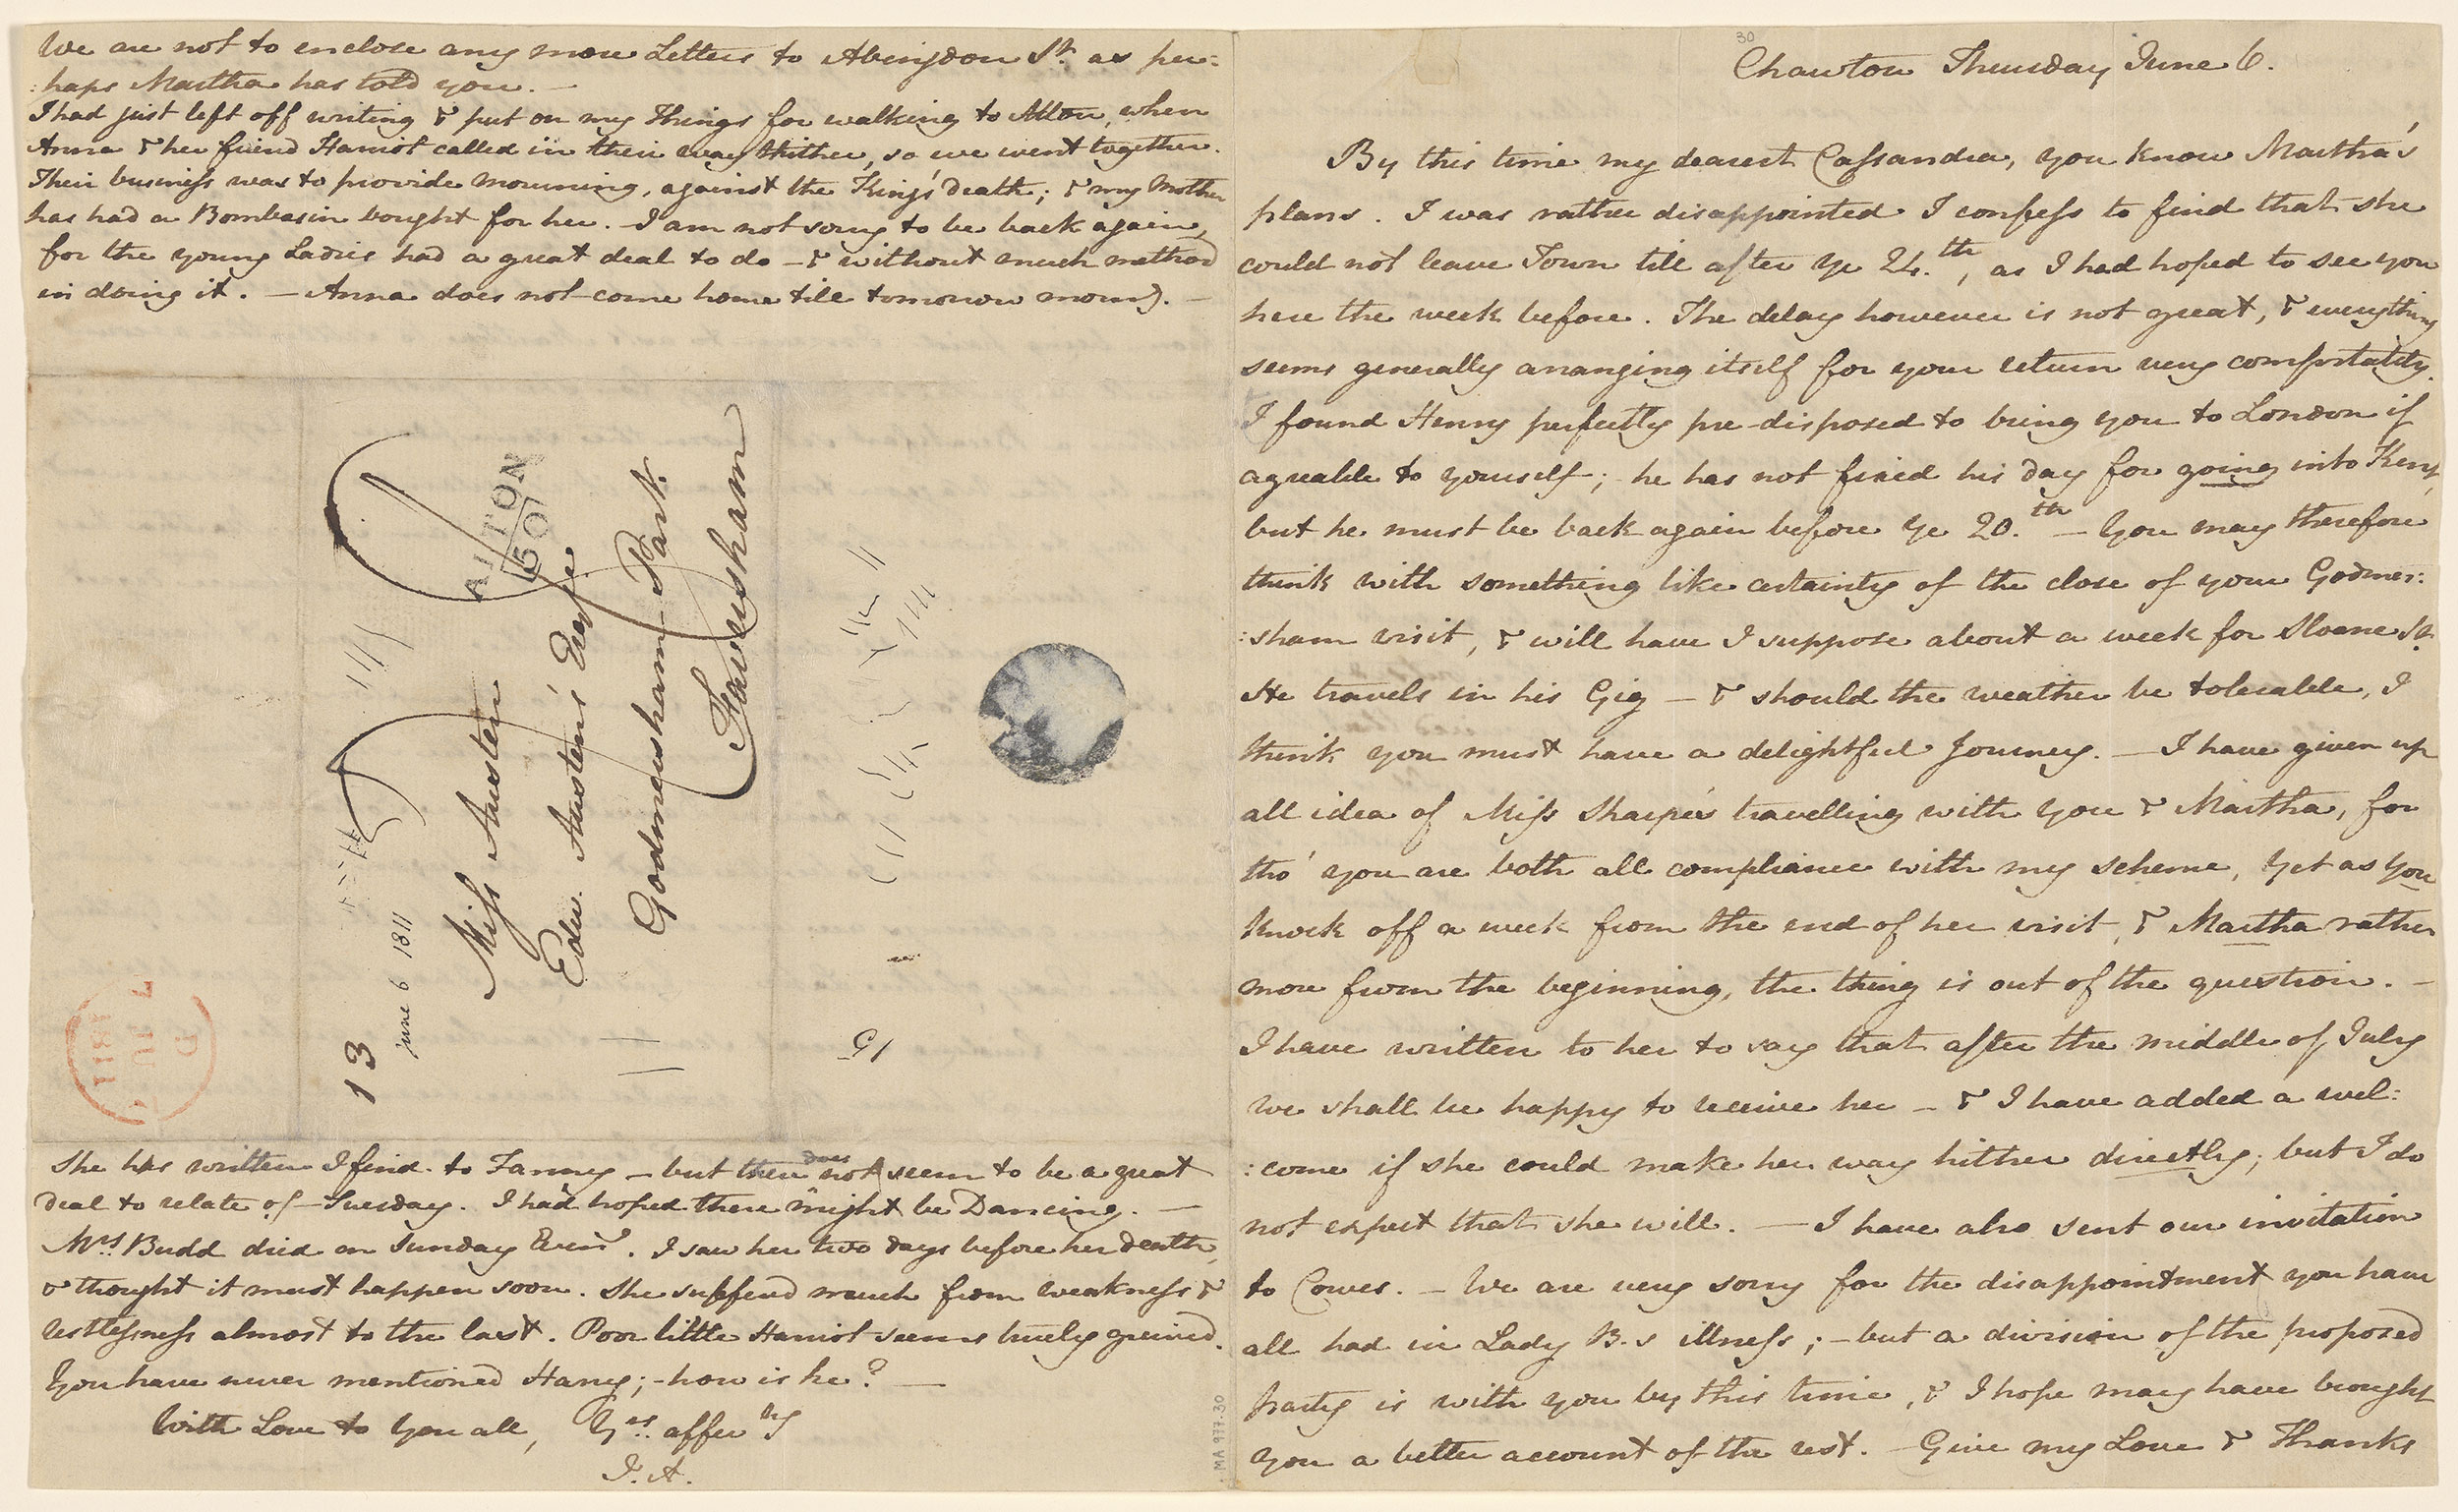 Chawton Thursday June 6.
By this time my dearest Cassandra, you know Martha's
plans. I was rather disappointed I confess to find that she
could not leave Town till after ye 24.th, as I had hoped to see you
here the week before. The delay however is not great, & everything
seems generally arranging itself for your return very comfortably.
I found Henry perfectly pre-disposed to bring you to London if
agreable to yourself; he has not fixed his day for going into Kent,
but he must be back again before ye 20.th — You may therefore
think with something like certainty of the close of your Godmer:
:sham visit, & will have I suppose about a week for Sloane St.
He travels in his Gig — & should the weather be tolerable, I
think you must have a delightful Journey. — I have given up
all idea of Miss Sharpe's travelling with you & Martha, for
tho' you are both all compliance with my scheme, yet as you
knock off a week from the end of her visit, & Martha rather
more from the beginning, the thing is out of the question. —
I have written to her to say that after the middle of July
we shall be happy to receive her — & I have added a wel:
:come if she could make her way hither directly; but I do
not expect that she will. — I have also sent our invitation
to Cowes. — We are very sorry for the disappointment you have
all had in Lady B.s illness; — but a division of the proposed
party is with you by this time, & I hope may have brought
you a better account of the rest. — Give my Love & Thanks
We are not to enclose any more Letters to Abingdon St. as per:
:haps Martha has told you. —
I had just left off writing & put on my Things for walking to Alton, when
Anna & her friend Harriot called in their way thither, so we went together.
Their business was to provide mourning, against the King's death; & my Mother
has had a Bombasin bought for her. — I am not sorry to be back again,
for the young Ladies had a great deal to do — & without much method
in doing it. — Anna does not come home till tomorrow morng. —
ALTON
50
Miss Austen
Edwd. Austen's Esqre
Godmersham Park
Faversham
13
june 6 1811
7 JU
1811
She has written I find to Fanny — but there does not seem to be a great
deal to relate of Tuesday. I had hoped there might be Dancing. —
Mrs Budd died on Sunday Eveng. I saw her two days before her death,
& thought it must happen soon. She suffered much from weakness &
restlessness almost to the last. Poor little Harriot seems truly grieved.
You have never mentioned Harry; — how is he? —
With Love to you all, Yrs. affecly
J. A.
30
MA 977.30